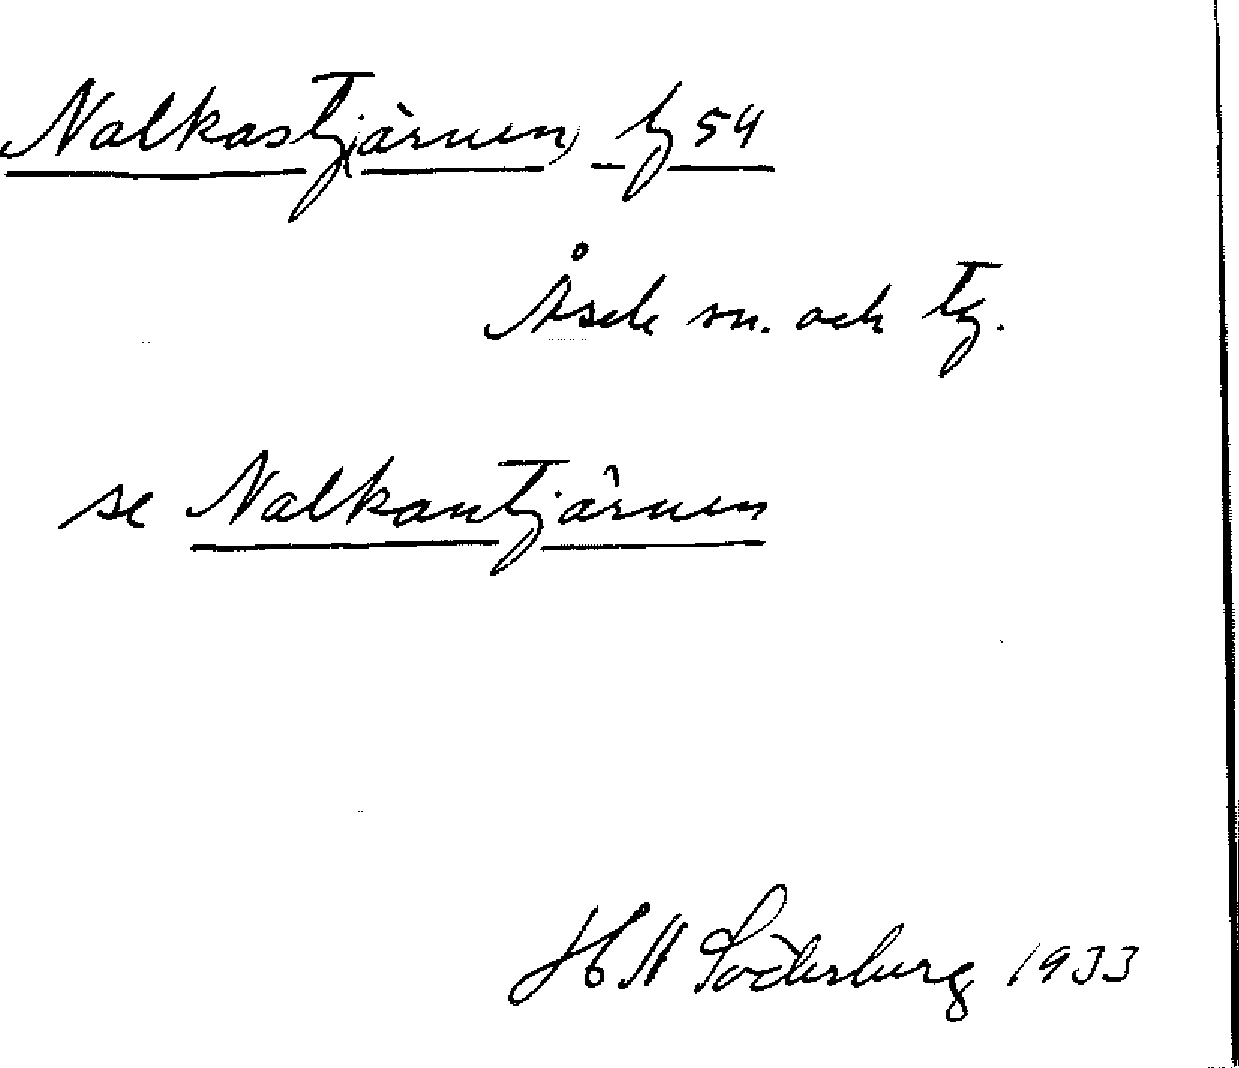 Nalkastjärnen, tj 54
Åsele sn. och tg.
se Nalkantjärnen
H N Söderberg 1933